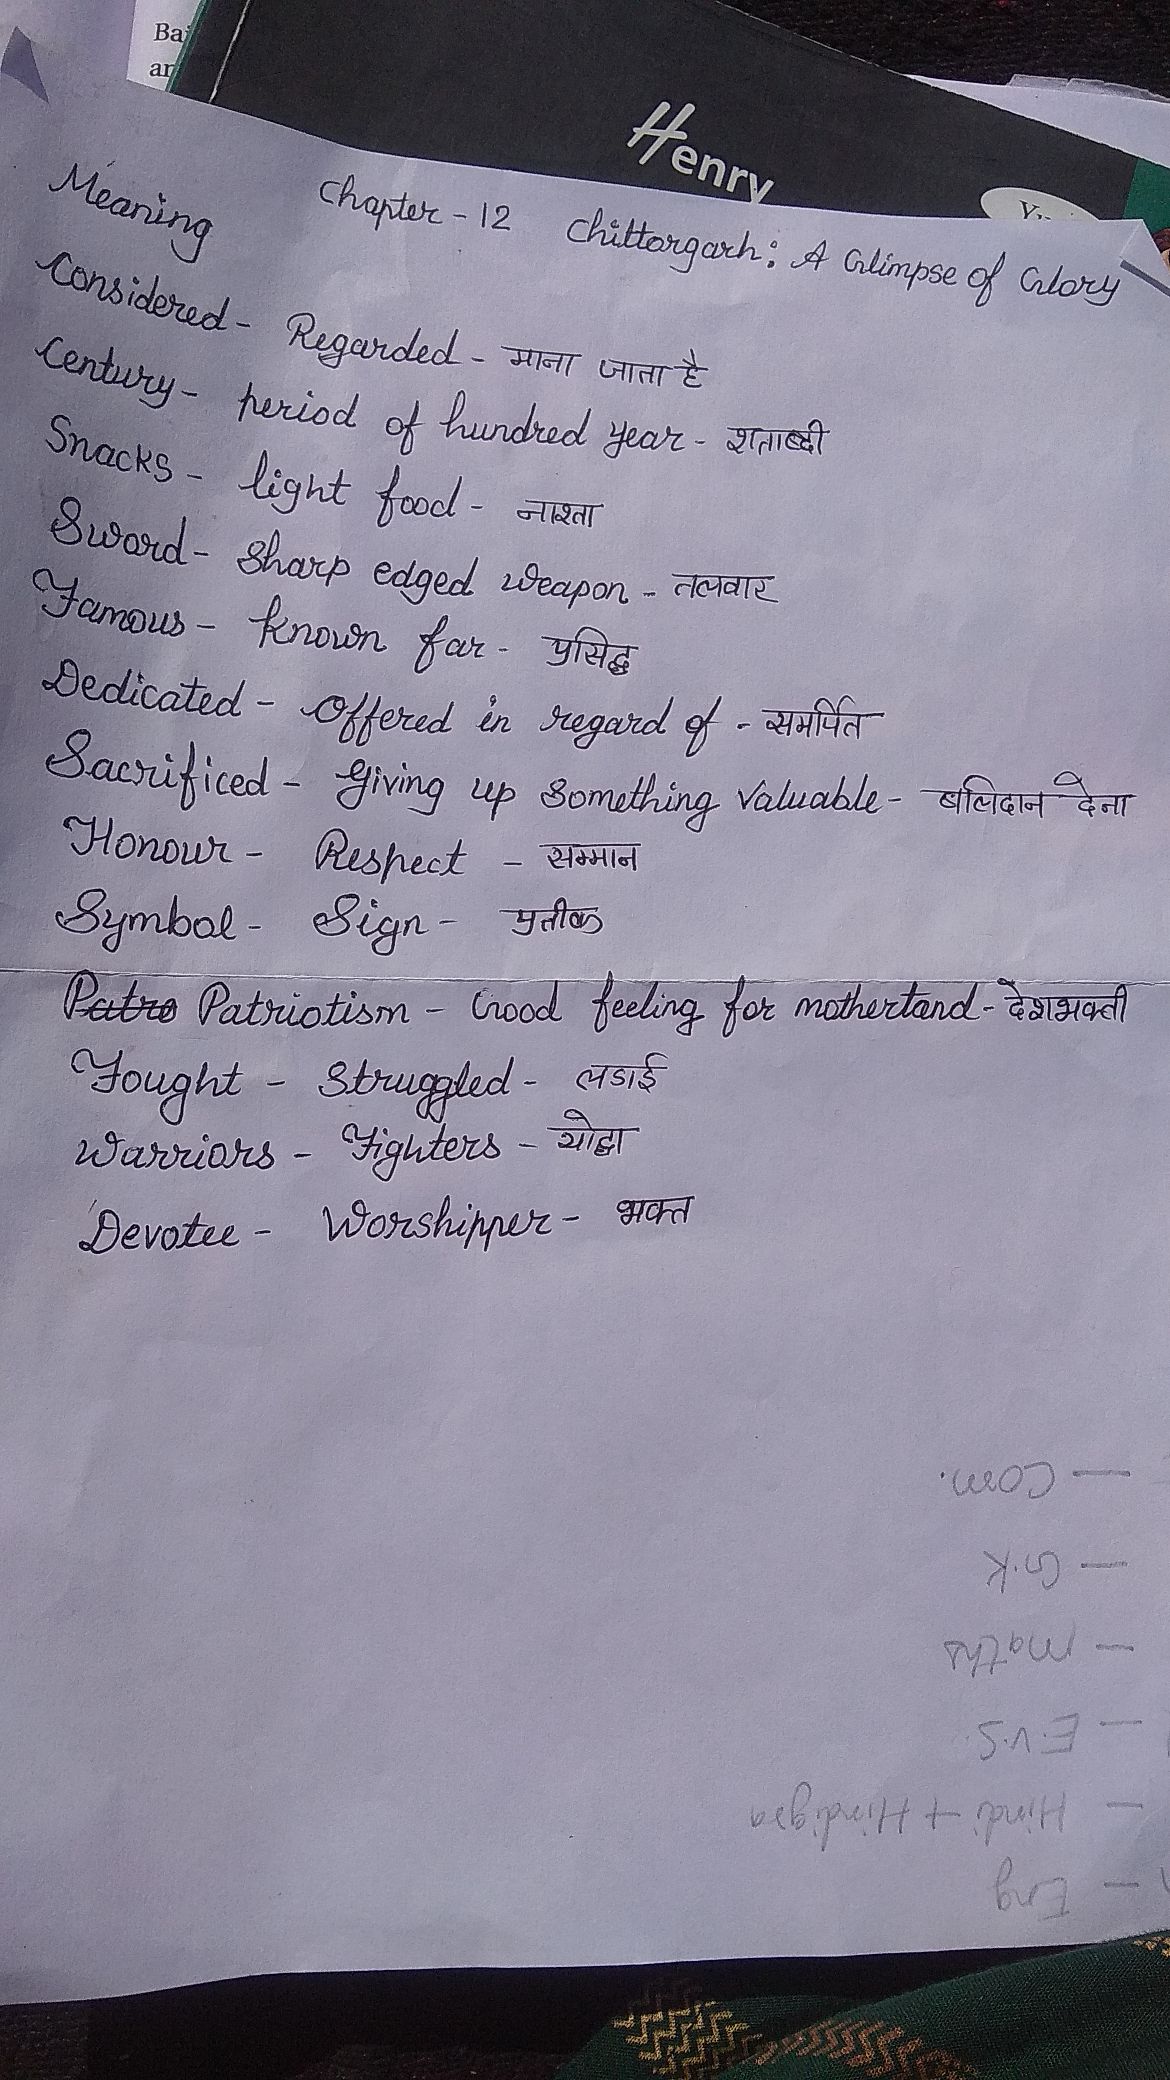 Ba
ar
Henry
Chapter - 12 Chittorgarh: A Glimpse of Glory
Meaning
Considered - Regarded - माना जाता है
Century - period of hundred year - शताब्दी
Snacks - light food - नाश्ता
Sword - Sharp edged weapon - तलवार
Famous - Known far - प्रसिद्ध
Dedicated - Offered in regard of - समर्पित
Sacrificed - Giving up Something Valuable - बलिदान देना
Honour - Respect - सम्मान
Symbol - Sign - प्रतीक
Patro Patriotism - Good feeling for motherland - देशभक्ती
Fought - Struggled - लडाई
Warriors - Fighters - योद्धा
Devotee - Worshipper - भक्त
- Com.
- G.K
- Maths
- E.V.S.
- Hindi + Hindi
- Eng